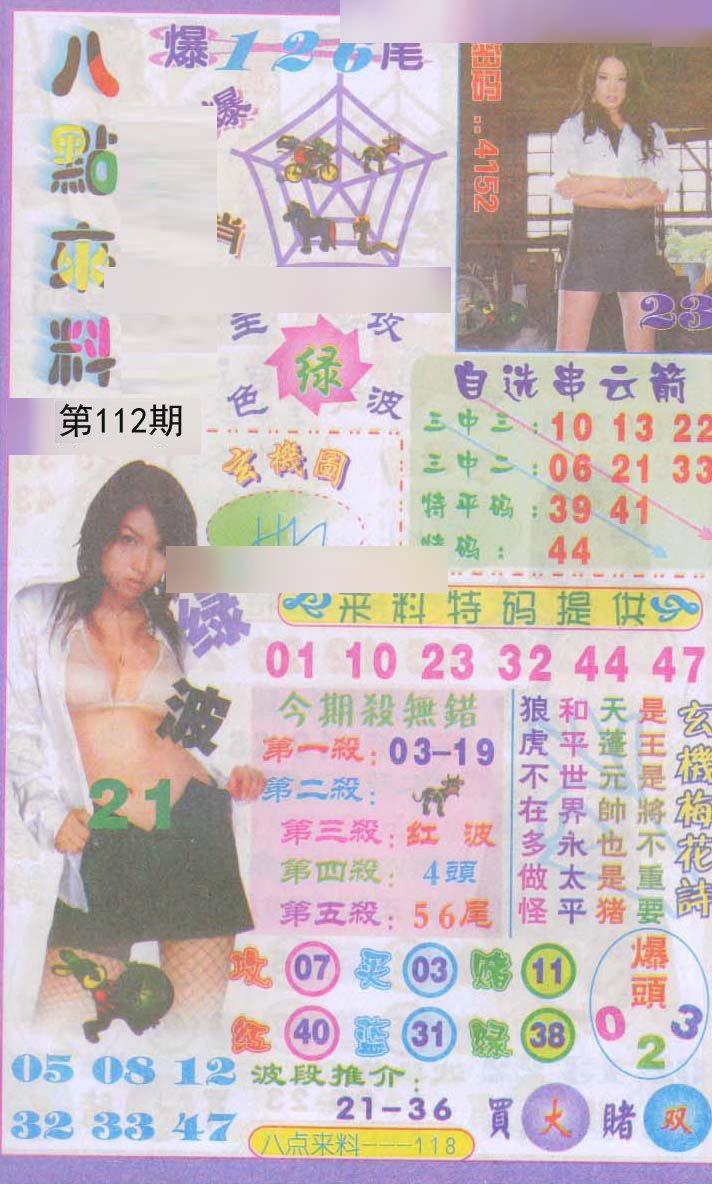 八點來料
爆126尾
爆
肖
密码:4152
23
玫
绿
色
波
自选串云箭
三中三: 10 13 22
三中二: 06 21 33
特平码: 39 41
特码: 44
第112期
玄機圖
绿波
21
来料特码提供
01 10 23 32 44 47
今期殺無錯
第一殺: 03-19
第二殺:
第三殺: 红波
第四殺: 4頭
第五殺: 56尾
玄機梅花詩
是王是將不重要
天蓬元帥也是猪
和平世界永太平
狼虎不在多做怪
攻 07 买 03 赌 11
红 40 蓝 31 绿 38
爆頭
0 2 3
05 08 12
32 33 47
波段推介:
21-36
買大賭双
八点来料---118